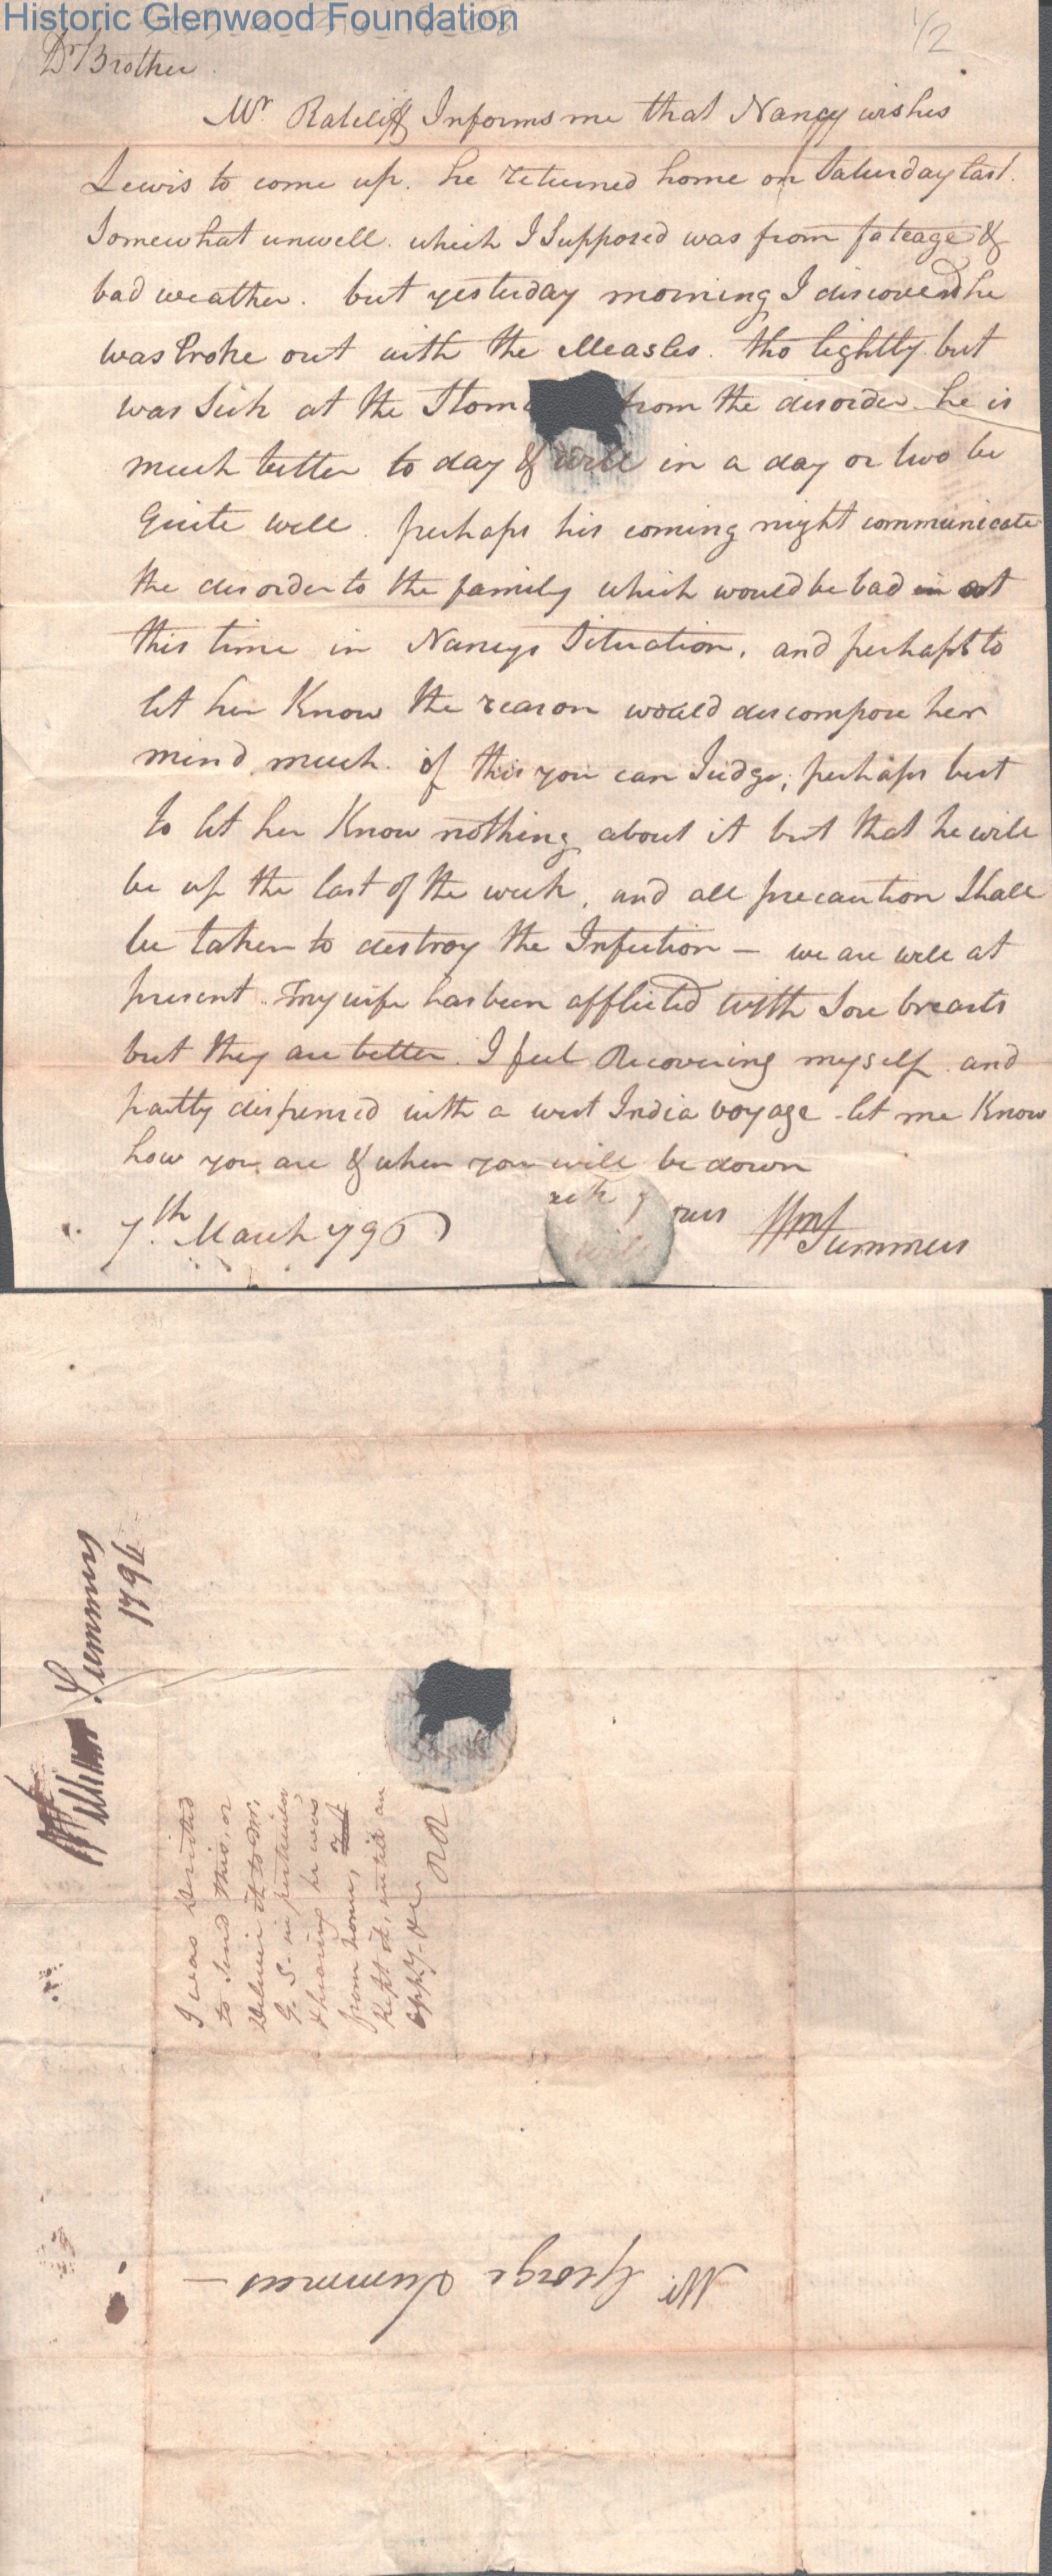 Historic Glenwood Foundation
1/2
Dr Brother
Mr Ratcliff Informs me that Nancy wishes
Lewis to come up. he returned home on Saturday last.
Somewhat unwell. which I Supposed was from fateage &
bad weather. but yesterday morning I discovered he
was broke out with the Measles. tho lightly but
was Sick at the Stoma from the disorder he is
much better to day & will in a day or two be
Quite well. perhaps his coming might communicate
the disorder to the family which would be bad in at
this time in Nancys Situation, and perhaps to
let her Know the reason would discompose her
mind much. of this you can Judge; perhaps best
to let her Know nothing about it but that he will
be up the last of the week, and all precaution Shall
be taken to destroy the Infection — we are well at
present. my wife has been afflicted with Sore breasts
but they are better. I feel Recovering myself and
partly dispensed with a west India voyage let me Know
how you are & when you will be down
7th March 1796
Wm Summers
William Summers
1796
I was desired
to Send this, or
deliver it to Mr.
G. S. in perticular
& hearing he was
from home,
Kept it, untill an
oppy. &c
RR
Mr George Summers —